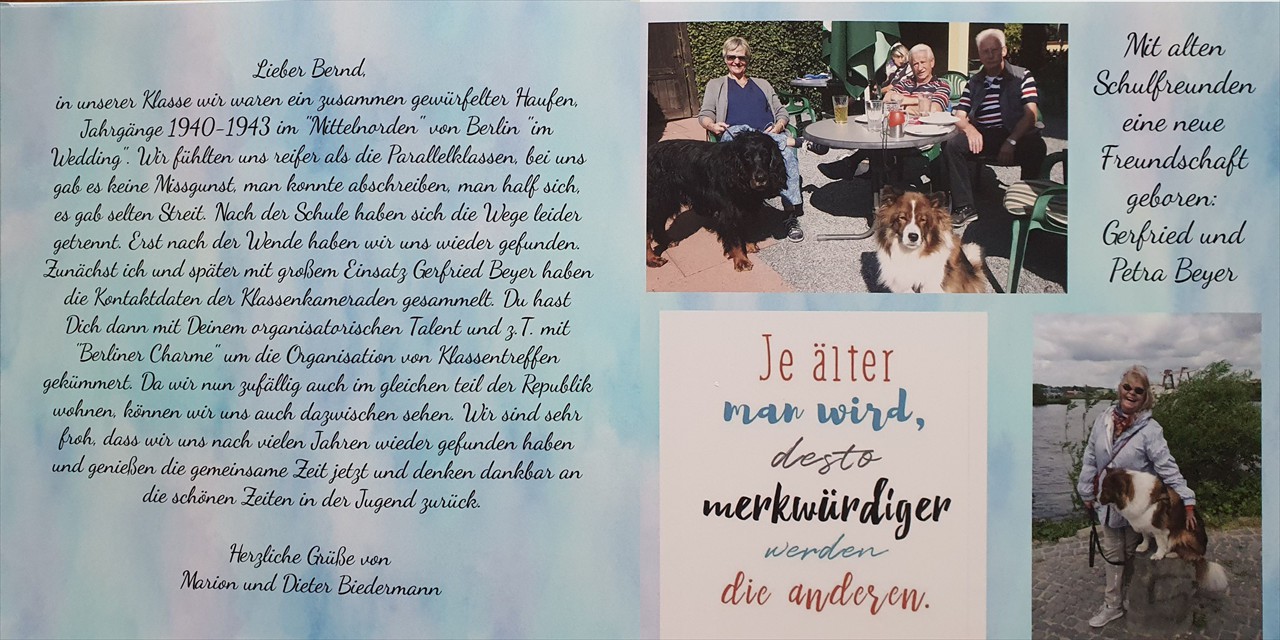 Lieber Bernd,
in unserer Klasse wir waren ein zusammen gewürfelter Haufen,
Jahrgänge 1940-1943 im "Mittelnorden" von Berlin "im
Wedding". Wir fühlten uns reifer als die Parallelklassen, bei uns
gab es keine Missgunst, man konnte abschreiben, man half sich,
es gab selten Streit. Nach der Schule haben sich die Wege leider
getrennt. Erst nach der Wende haben wir uns wieder gefunden.
Zunächst ich und später mit großem Einsatz Gerfried Beyer haben
die Kontaktdaten der Klassenkameraden gesammelt. Du hast
Dich dann mit Deinem organisatorischen Talent und z.T. mit
"Berliner Charme" um die Organisation von Klassentreffen
gekümmert. Da wir nun zufällig auch im gleichen teil der Republik
wohnen, können wir uns auch dazwischen sehen. Wir sind sehr
froh, dass wir uns nach vielen Jahren wieder gefunden haben
und genießen die gemeinsame Zeit jetzt und denken dankbar an
die schönen Zeiten in der Jugend zurück.
Herzliche Grüße von
Marion und Dieter Biedermann
Mit alten
Schulfreunden
eine neue
Freundschaft
geboren:
Gerfried und
Petra Beyer
Je älter
man wird,
desto
merkwürdiger
werden
die anderen.